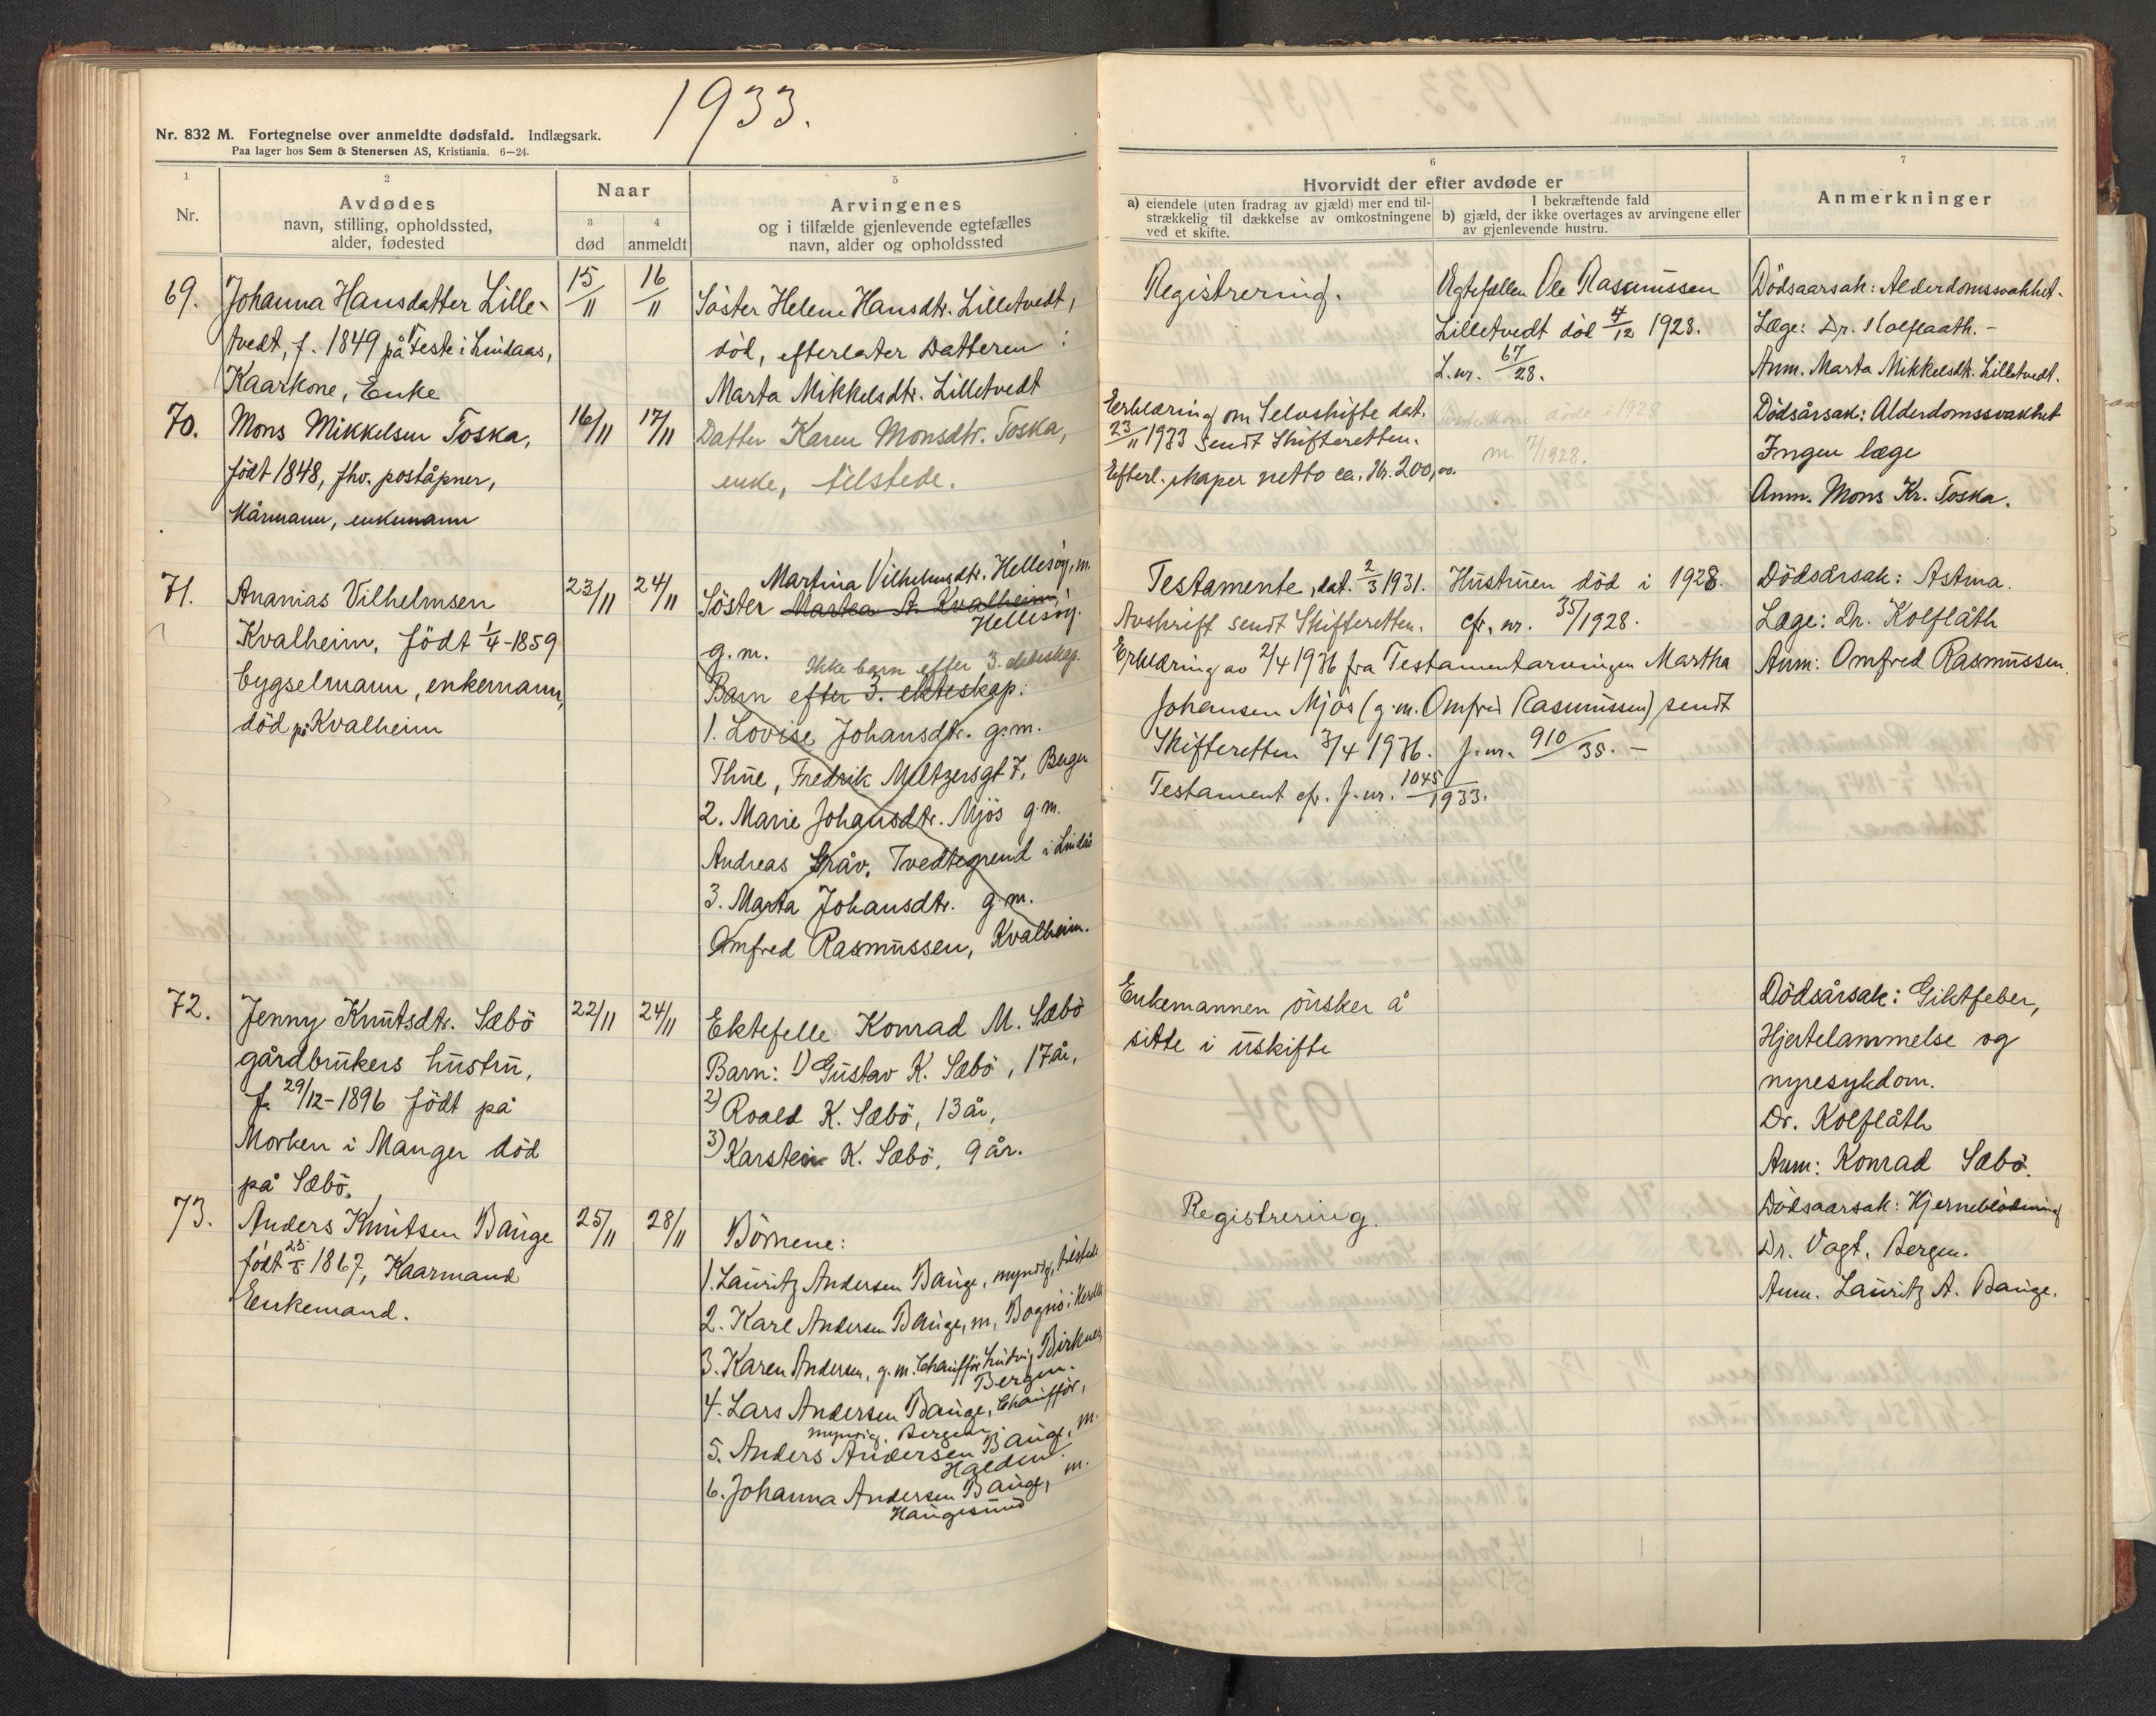 1933.
Nr. 832 M. Fortegnelse over anmeldte dødsfald. Indlægsark.
Paa lager hos Sem & Stenersen AS, Kristiania. 6—24.
1
Nr.
2
Avdødes
navn, stilling, opholdssted,
alder, fødested
Naar
3
død
4
anmeldt
5
Arvingenes
og i tilfælde gjenlevende egtefælles
navn, alder og opholdssted
6
Hvorvidt der efter avdøde er
a) eiendele (uten fradrag av gjæld) mer end til-
strækkelig til dækkelse av omkostningene
ved et skifte.
I bekræftende fald
b) gjæld, der ikke overtages av arvingene eller
av gjenlevende hustru.
7
Anmerkninger
69.
Johanna Hansdatter Lille-
tvedt, f. 1849 på Feste i Lindaas,
Kaarkone, Enke
15/11
16/11
Søster Helene Hansdtr. Lilletvedt,
død, efterlater Datteren :
Marta Mikkelsdtr. Lilletvedt
Registrering.
Egtefællen Ole Rasmussen
Lilletvedt död 4/12 1928.
L.nr. 67/28.
Dödsaarsak: Alderdomssvakhet.
Læge: Dr. Kolflaath. -
Anm. Marta Mikkelsdtr. Lilletvedt.
70.
Mons Mikkelsen Toska,
født 1848, fhv. poståpner,
kårmann, enkemann
16/11
17/11
Datter Karen Monsdtr. Toska,
enke, tilstede.
Erklæring om Selvskifte dat.
23/11 1933 sendt Skifteretten.
Efterl. skaper netto ca. Kr. 200,oo.
døde i 1928
7/1928.
Dödsårsak: Alderdomssvakhet
Ingen læge
Anm. Mons Kr. Toska.
71.
Ananias Vilhelmsen
Kvalheim, født 1/4-1859
bygselmann, enkemann,
död på Kvalheim
23/11
24/11
Martina Vilhelmsdtr. Hellesöy, m.
Söster Martea A. Kvalheim,
g. m. Hellesöy.
Ikke barn efter 3. ekteskap.
Barn efter 3. ekteskap:
1. Lovise Johansdtr. g.m.
Thue, Fredrik Meltzersgt 7, Bergen
2. Marie Johansdtr. Mjös g.m.
Andreas Tvedtegrend i Lindås
3. Marta Johansdtr. g.m.
Omfred Rasmussen, Kvalheim.
Testamente, dat. 2/3 1931.
Avskrift sendt Skifteretten.
Hustruen död i 1928.
cfr. nr. 35/1928.
Erklæring av 2/4 1936 fra Testamentarvingen Martha
Johansen Mjös (g.m. Omfred Rasmussen) sendt
Skifteretten 3/4 1936. j.nr. 910/35. -
Testament cfr. j.nr. 1045/1933.
Dödsårsak: Astma.
Læge: Dr. Kolflåth
Anm: Omfred Rasmussen.
72.
Jenny Knutsdtr. Sæbö
gårdbrukers hustru,
f. 29/12-1896 født på
Morken i Manger död
på Sæbö.
22/11
24/11
Ektefelle Konrad M. Sæbö
Barn: 1) Gustav K. Sæbö, 17 år,
2) Roald K. Sæbö, 13 år,
3) Karstein K. Sæbö, 9 år.
Enkemannen önsker å
sitte i uskifte
Dödsårsak: Giktfeber,
Hjertelammelse og
nyresykdom.
Dr. Kolflåth
Anm: Konrad Sæbö.
73.
Anders Knutsen Bauge
født 25/5 1867, Kaarmand
Enkemand.
25/11
28/11
Börnene:
1. Lauritz Andersen Bauge, myndig, tilstede
2. Karl Andersen Bauge, m, Bognö i Herdla
3. Karen Andersen, g.m. Chaufför Ludvig Birknes
Bergen.
4. Lars Andersen Bauge, Chaufför,
myndig, Bergen.
5. Anders Andersen Bauge, m.
Halden.
6. Johanna Andersen Bauge, m.
Haugesund
Registrering.
Dödsaarsak: Hjerneblödning
Dr. Vogt, Bergen.
Anm. Lauritz A. Bauge.